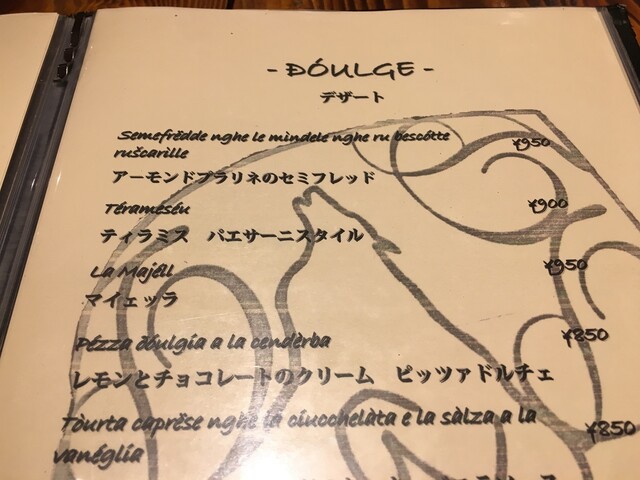 - ÐÓULGE -
デザート
Semefrëdde nghe le mìndele nghe ru bescótte ¥950
rušcarille
アーモンドプラリネのセミフレッド
Térameséu ¥900
ティラミス パエサーニスタイル
La Majéll ¥950
マイェッラ
Pézza ðóulgía a la cendèrba ¥850
レモンとチョコレートのクリーム ピッツァドルチェ
Tòurta caprëse nghe la ciucchelàta e la sàlza a la ¥850
vanéglia